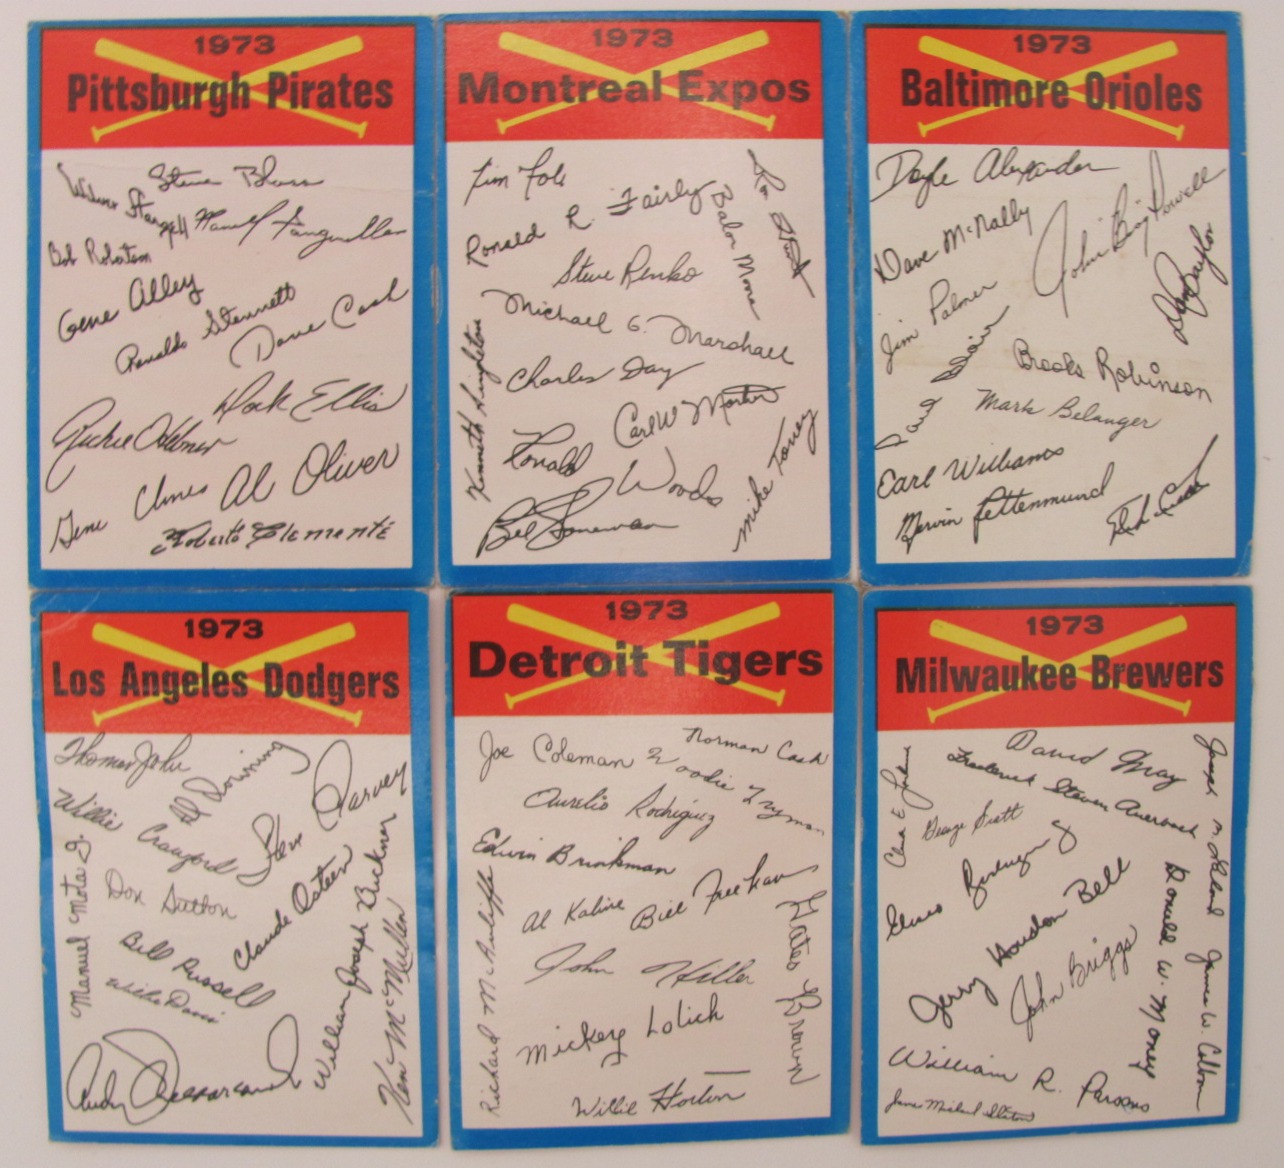 1973
Pittsburgh Pirates
Steve Blass
Wilver Stargell
Manuel Sanguillen
Bob Robertson
Gene Alley
Renaldo Stennett
Dave Cash
Dock Ellis
Richie
Al Oliver
Gene Clines
Roberto Clemente
1973
Montreal Expos
Tim Foli
Ronald R. Fairly
Balor Moore
Steve Renko
Michael G. Marshall
Kenneth Singleton
Charles Day
Carl W Morton
Ronald Woods
Mike Torrez
Bill Stoneman
1973
Baltimore Orioles
Doyle Alexander
Dave McNally
John "Big" Powell
Don Baylor
Jim Palmer
Paul Blair
Brooks Robinson
Mark Belanger
Earl Williams
Mervin Rettenmund
1973
Los Angeles Dodgers
Thomas John
Al Downing
Willie Crawford
Steve Garvey
Manuel Mota
Don Sutton
Claude Osteen
Bill Russell
Willie Davis
William Joseph Buckner
Ken McMullen
Andy Messersmith
1973
Detroit Tigers
Joe Coleman
Norman Cash
Woodie Fryman
Aurelio Rodriguez
Edwin Brinkman
Al Kaline
Bill Freehan
Gates Brown
Richard McAuliffe
John Hiller
Mickey Lolich
Willie Horton
1973
Milwaukee Brewers
David May
Frederick Steven Auerbach
George Scott
Elvio
Jerry Houston Bell
John Briggs
Donald W. Money
James W. Colborn
William R. Parsons